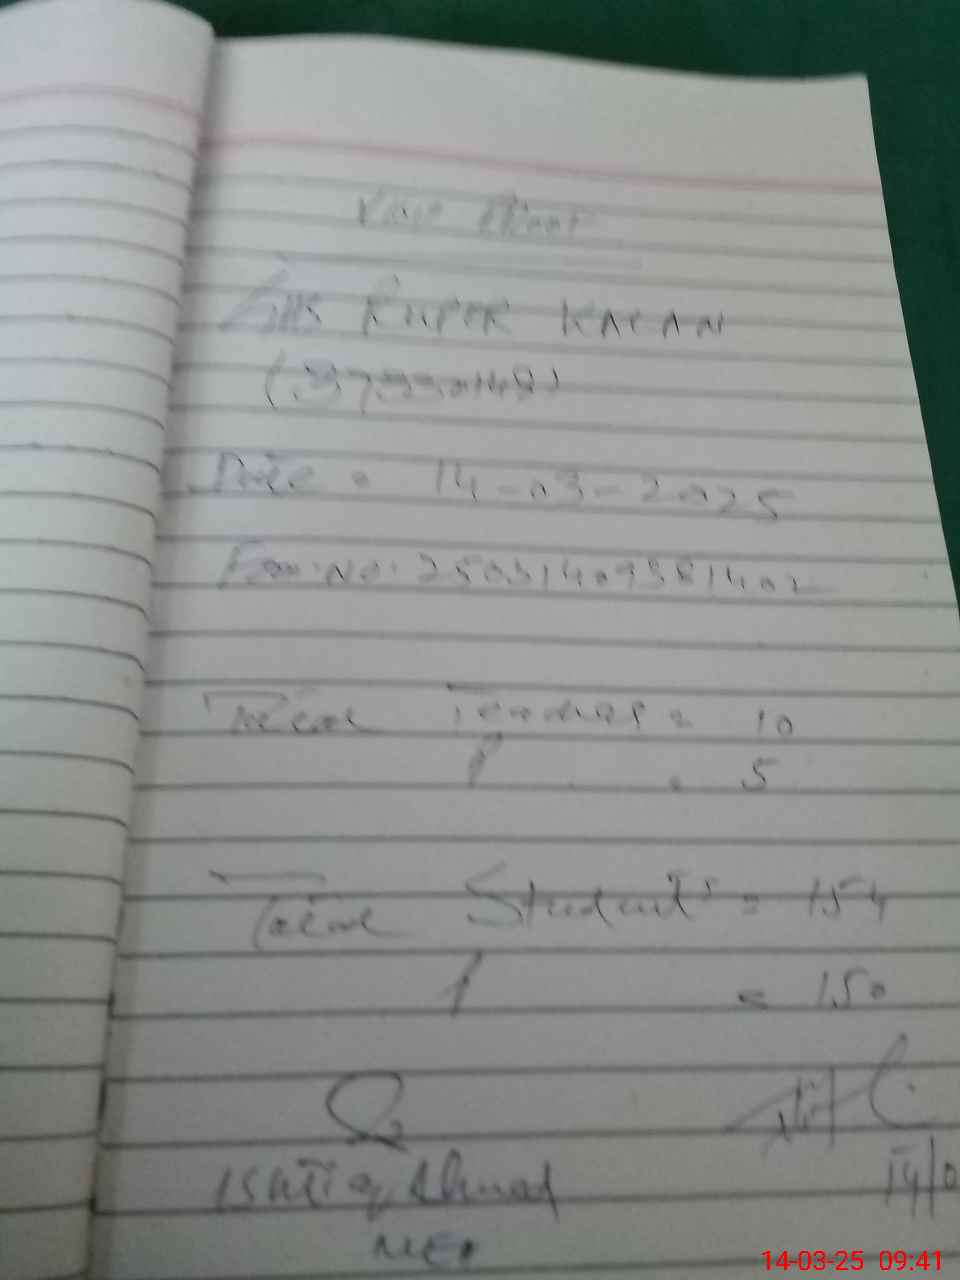 Visit
GHS KUPER KALAN
(37330148)
Date = 14-03-2025
Form No: 25031409381402
Total Teachers = 10
P = 5
Total Students = 154
P = 150
Ishtiaq Ahmad
MEA
14/0
14-03-25 09:41